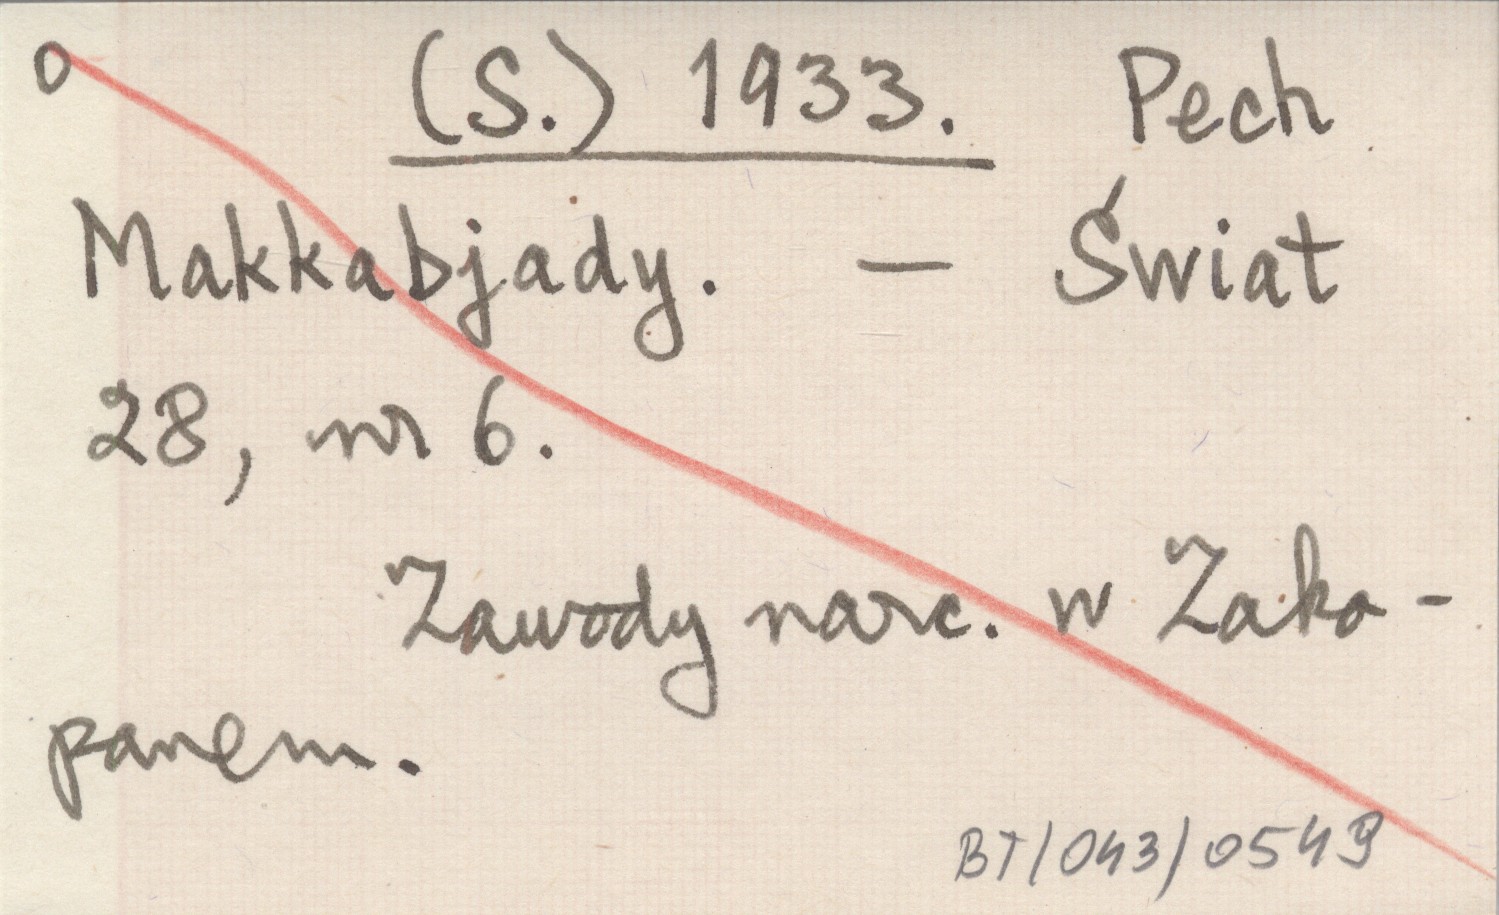 O (S.) 1933. Pech
Makkabjady. — Świat
28, nr 6.
Zawody narc. w Zako-
panem.
BT/043/0549